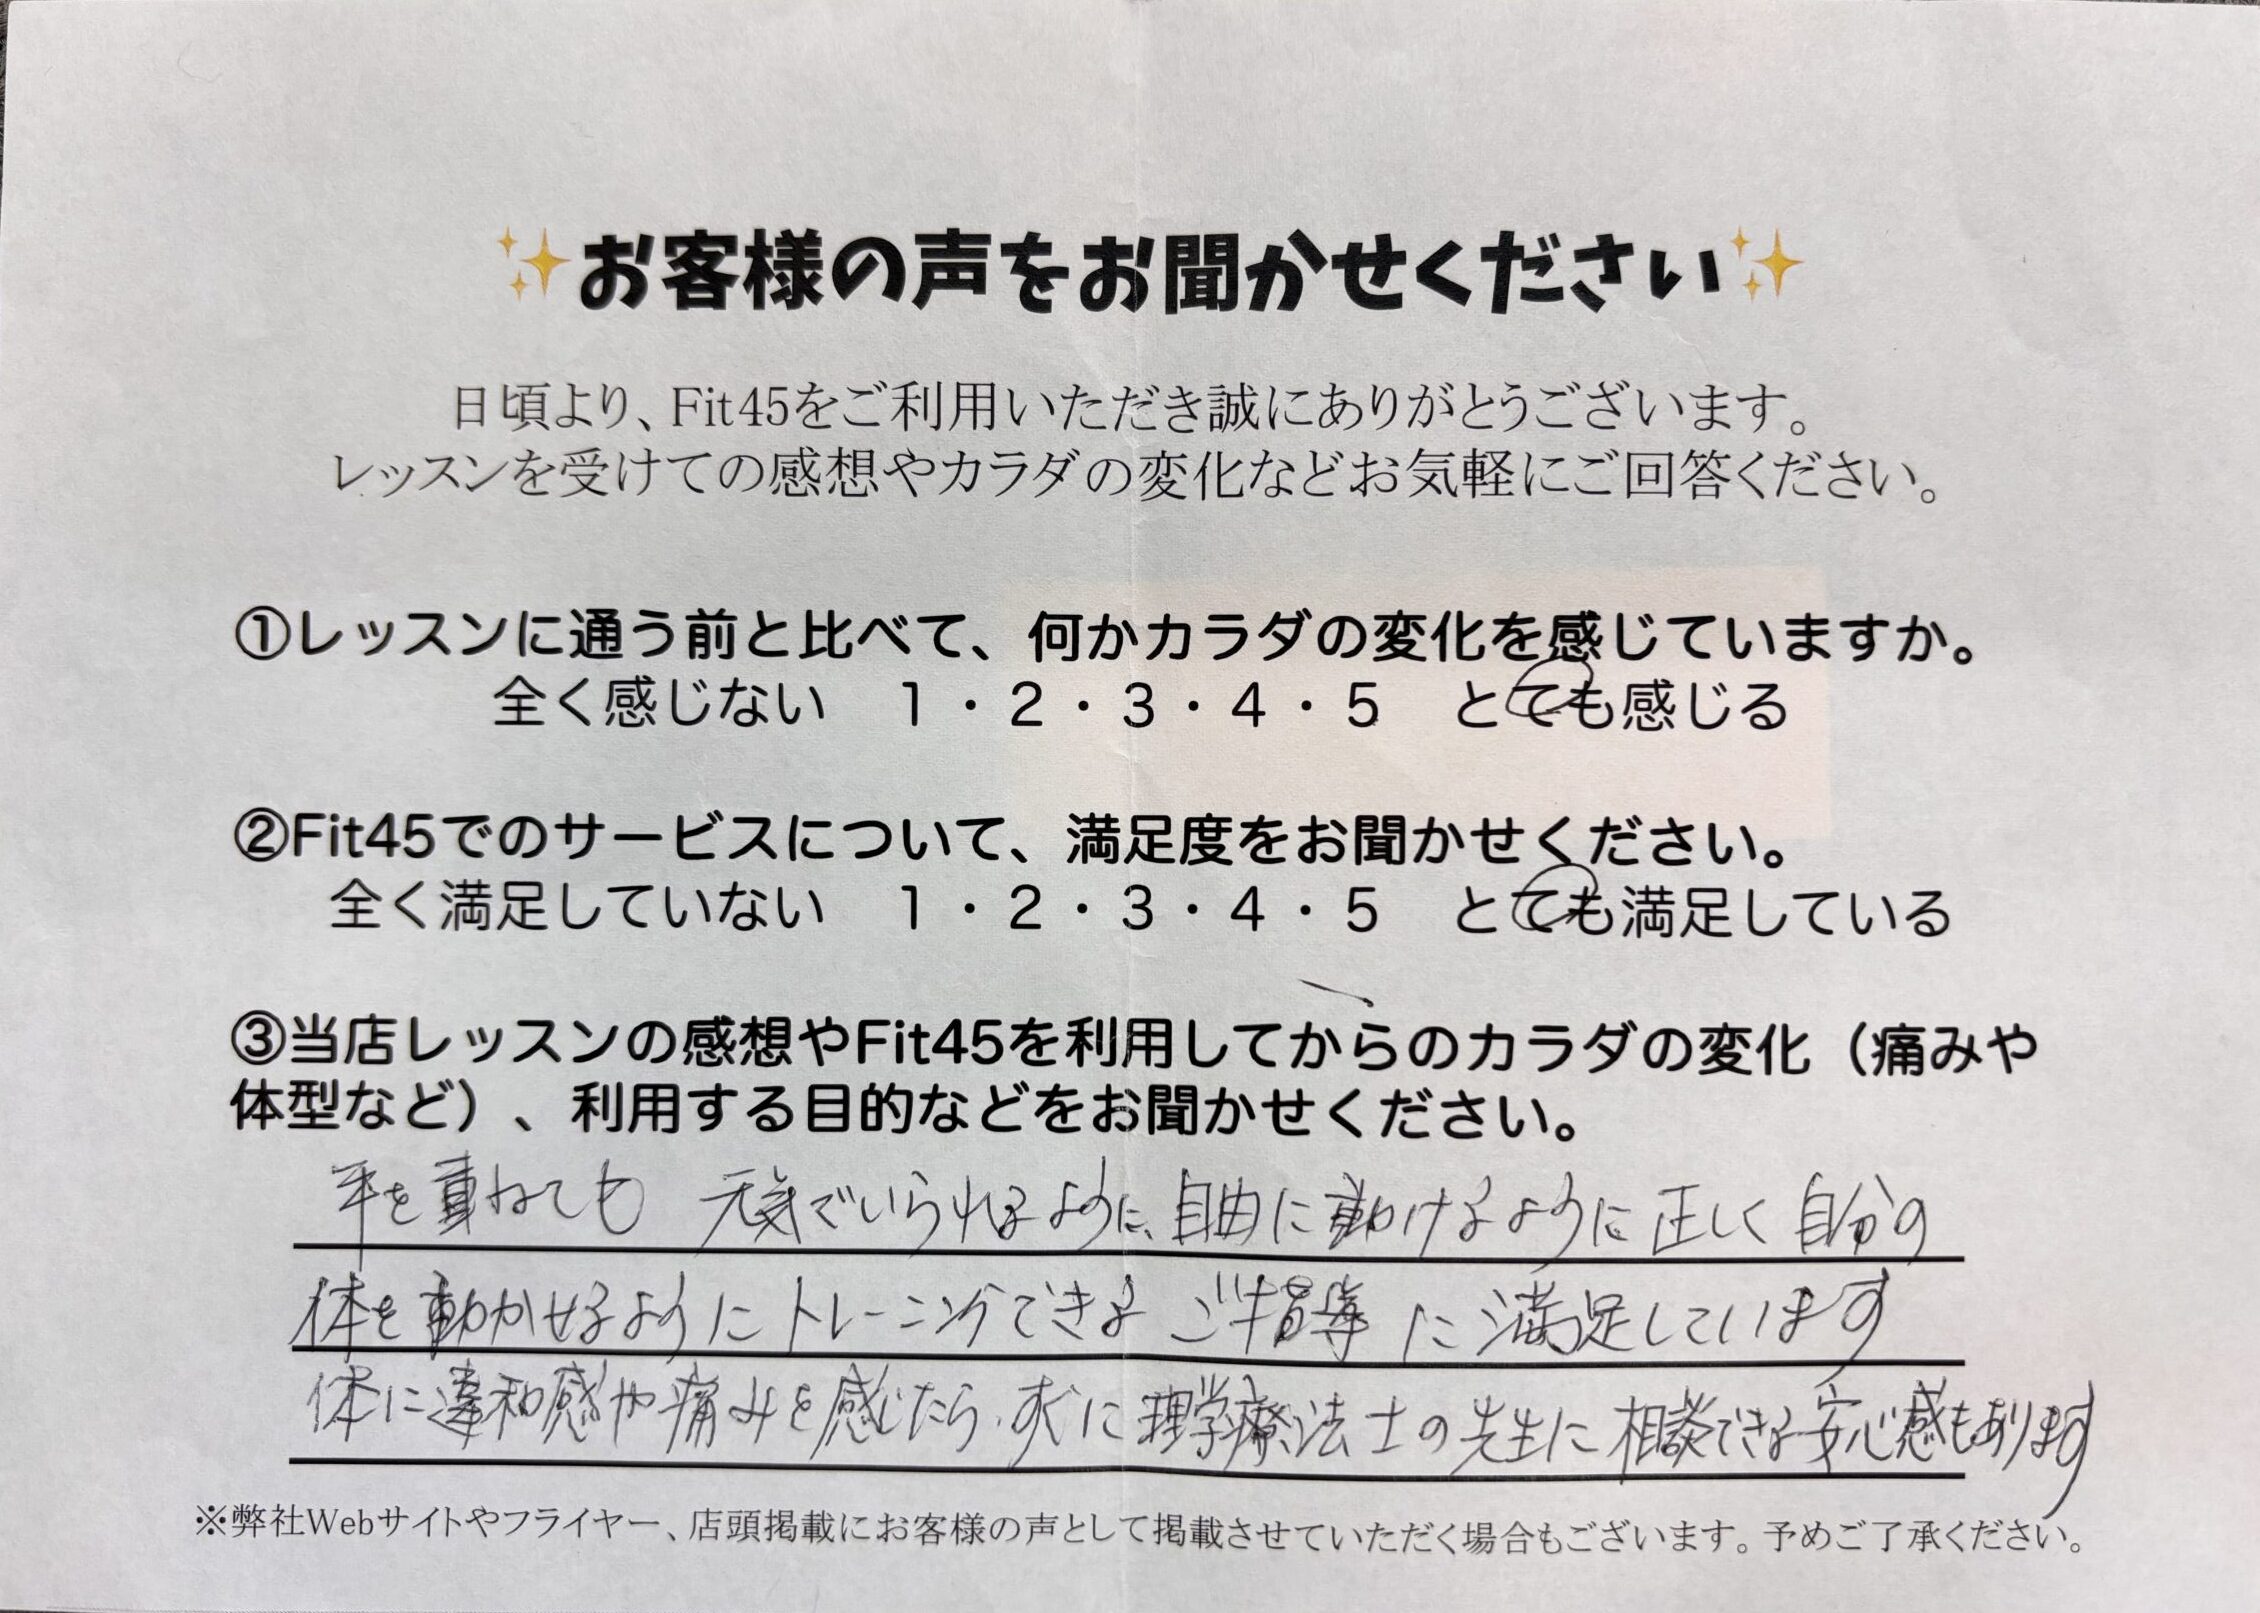 ✨お客様の声をお聞かせください✨
日頃より、Fit45をご利用いただき誠にありがとうございます。
レッスンを受けての感想やカラダの変化などお気軽にご回答ください。
①レッスンに通う前と比べて、何かカラダの変化を感じていますか。
全く感じない　1・2・3・4・5　とても感じる
②Fit45でのサービスについて、満足度をお聞かせください。
全く満足していない　1・2・3・4・5　とても満足している
③当店レッスンの感想やFit45を利用してからのカラダの変化（痛みや
体型など）、利用する目的などをお聞かせください。
年を重ねても 元気でいられるように、自由に動けるように正しく自分の
体を動かせるようにトレーニングできるご指導に満足しています
体に違和感や痛みを感じたら、すぐに理学療法士の先生に相談できる安心感もあります
※弊社Webサイトやフライヤー、店頭掲載にお客様の声として掲載させていただく場合もございます。予めご了承ください。